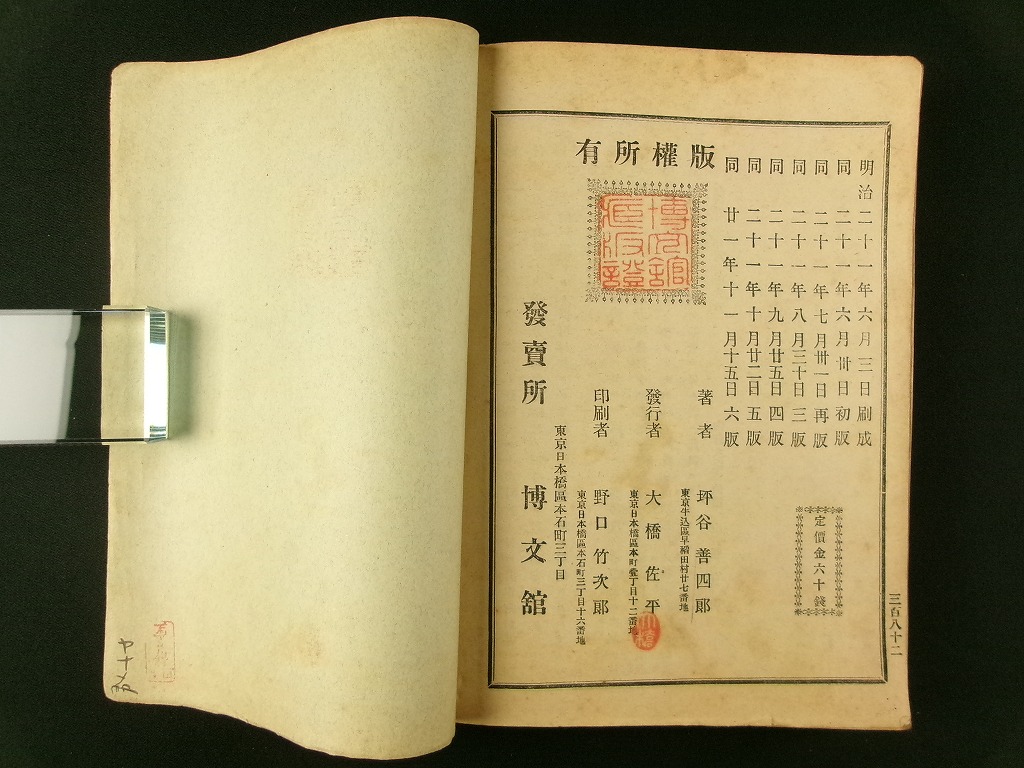 明治二十一年六月三日刷成
同二十一年六月卅日初版
同二十一年七月卅一日再版
同二十一年八月三十日三版
同二十一年九月廿五日四版
同二十一年十月廿二日五版
同廿一年十一月十五日六版
定價金六十錢
版權所有
博文館
版證
著者 坪谷善四郎
東京牛込區早稲田村廿七番地
發行者 大橋佐平
東京日本橋區本町壹丁目十二番地
大橋
印刷者 野口竹次郎
東京日本橋區本石町三丁目十六番地
東京日本橋區本石町三丁目
發賣所 博文舘
三百八十二